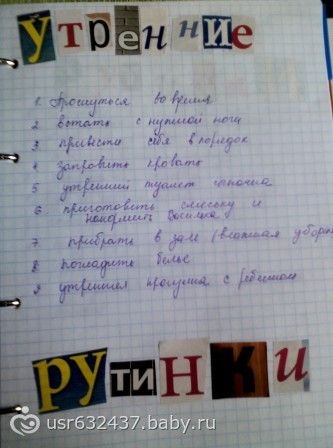 утренние
1 Проснуться во время
2 встать с нужной ноги
3 привести себя в порядок
4 заправить кровать
5 утренний туалет сыночка
6 приготовить смеську и
накормить Басика
7 прибрать в зале (влажная убор
8 погладить белье
9 утренняя прогулка с ребенком
рутинки
usr632437.baby.ru